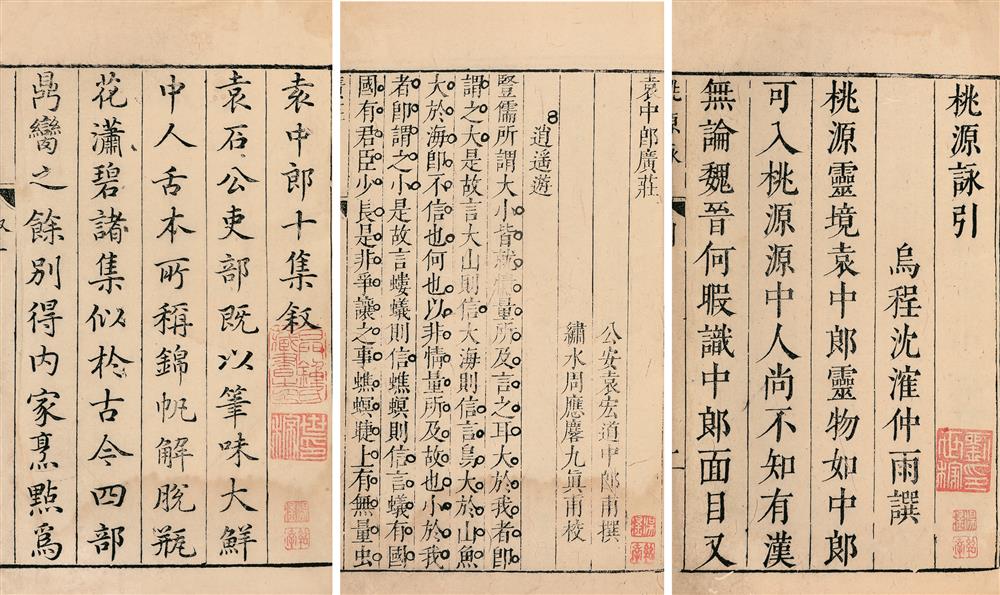 袁中郎十集叙
袁石公吏部既以筆味大鮮
中人舌本所稱錦帆解脫瓶
花瀟碧諸集似於古今四部
鼎臠之餘別得內家烹點爲
袁中郎廣莊
公安袁宏道中郎甫撰
繡水周應麐九眞甫校
逍遥遊
豎儒所謂大小皆就情量所及言之耳大於我者即
謂之大是故言大山則信大海則信言鳥大於山魚
大於海即不信也何也以非情量所及故也小於我
者即謂之小是故言螻蟻則信蟭螟則信言蟻有國
國有君臣少長是非爭讓之事蟭螟睫上有無量虫
桃源詠引
烏程沈㴶仲雨譔
桃源靈境袁中郎靈物如中郎
可入桃源源中人尚不知有漢
無論魏晉何暇識中郎面目又